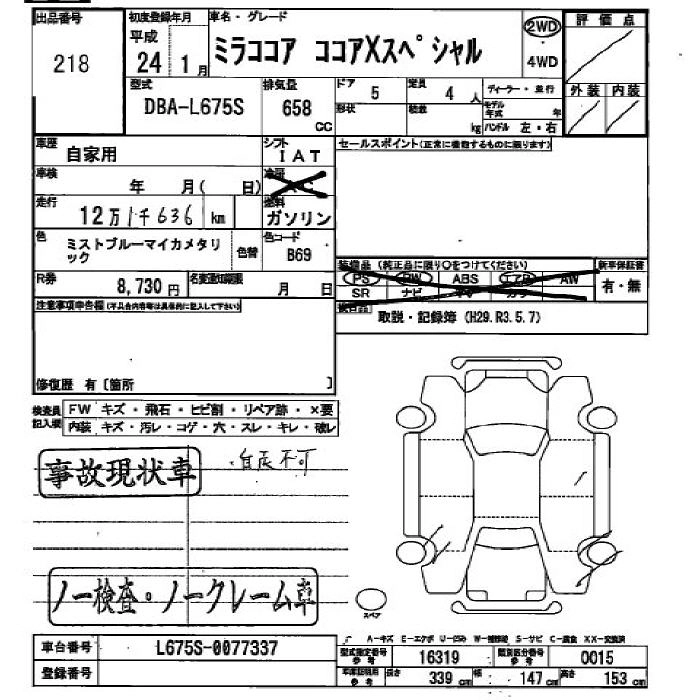 出品番号
218
初度登録年月
平成
24 1月
車名・グレード
ミラココア ココアXスペシャル
2WD
4WD
評価点
外装 内装
型式
DBA-L675S
排気量
658
CC
ドア
5
形状
定員
4人
積載
kg
ディーラー・並行
モデル年式 年
ハンドル 左・右
車歴
自家用
シフト
IAT
セールスポイント(正常に機能するものに限ります)
車検
年 月( 日)
冷房
走行
12万1千636 km
燃料
ガソリン
色
ミストブルーマイカメタリック
色替
色コード
B69
装備品 (純正品に限り○をつけてください)
PS PW ABS エアB AW
SR ナビ TV カワ
新車保証書
有・無
R券
8,730円
名変通知期限
月 日
取説・記録簿(H29.R3.5.7)
注意事項申告欄(不具合内容等は具体的に記入して下さい)
修復歴 有〔箇所 〕
検査員記入欄
FW キズ・飛石・ヒビ割・リペア跡・×要
内装 キズ・汚レ・コゲ・穴・スレ・キレ・破レ
事故現状車
・自走不可
ノー検査・ノークレーム車
スペア
A-キズ E-エクボ U-凹み W-補修跡 S-サビ C-腐食 XX-交換済
車台番号
L675S-0077337
登録番号
型式指定番号 参考
16319
類別区分番号 参考
0015
車庫証明用 参考
長さ
339 cm
幅
147 cm
高さ
153 cm